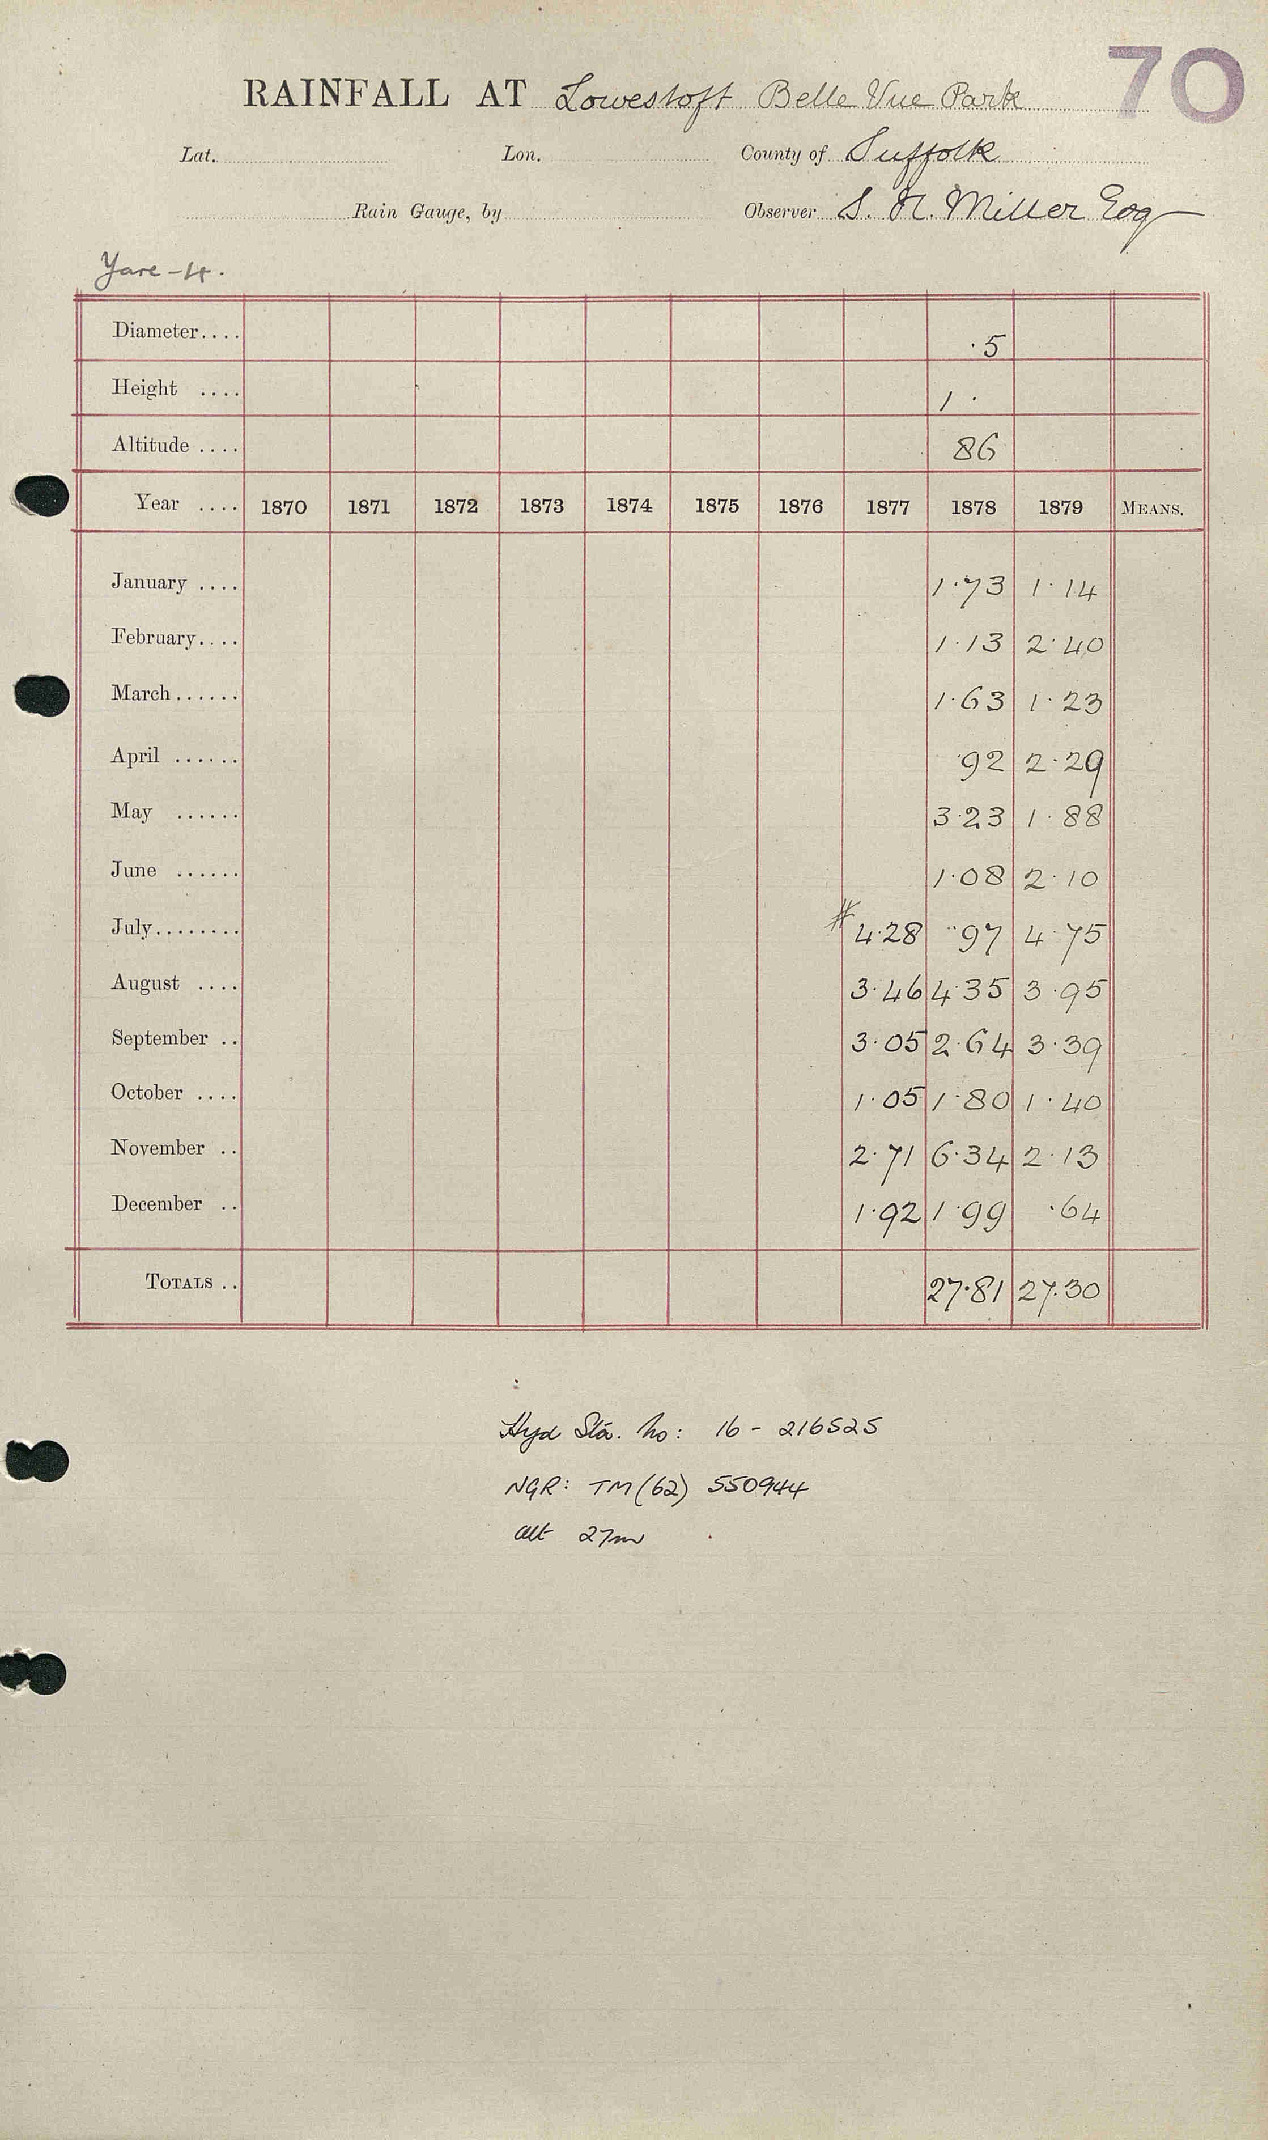 70
RAINFALL AT Lowestoft Belle Vue Park
Lat. Lon. County of Suffolk
Rain Gauge, by Observer S. H. Miller Esq
Yare - 4.
Diameter.... ·5
Height .... 1 ·
Altitude .... 86
Year .... 1870 1871 1872 1873 1874 1875 1876 1877 1878 1879 MEANS.
January .... 1·73 1·14
February.... 1·13 2·40
March...... 1·63 1·23
April ...... ·92 2·29
May ...... 3·23 1·88
June ...... 1·08 2·10
July........ # 4·28 ·97 4·75
August .... 3·46 4·35 3·95
September .. 3·05 2·64 3·39
October .... 1·05 1·80 1·40
November .. 2·71 6·34 2·13
December .. 1·92 1·99 ·64
TOTALS .. 27·81 27·30
Hyd Sta. No: 16 - 216525
NGR: TM (62) 550944
alt 27m